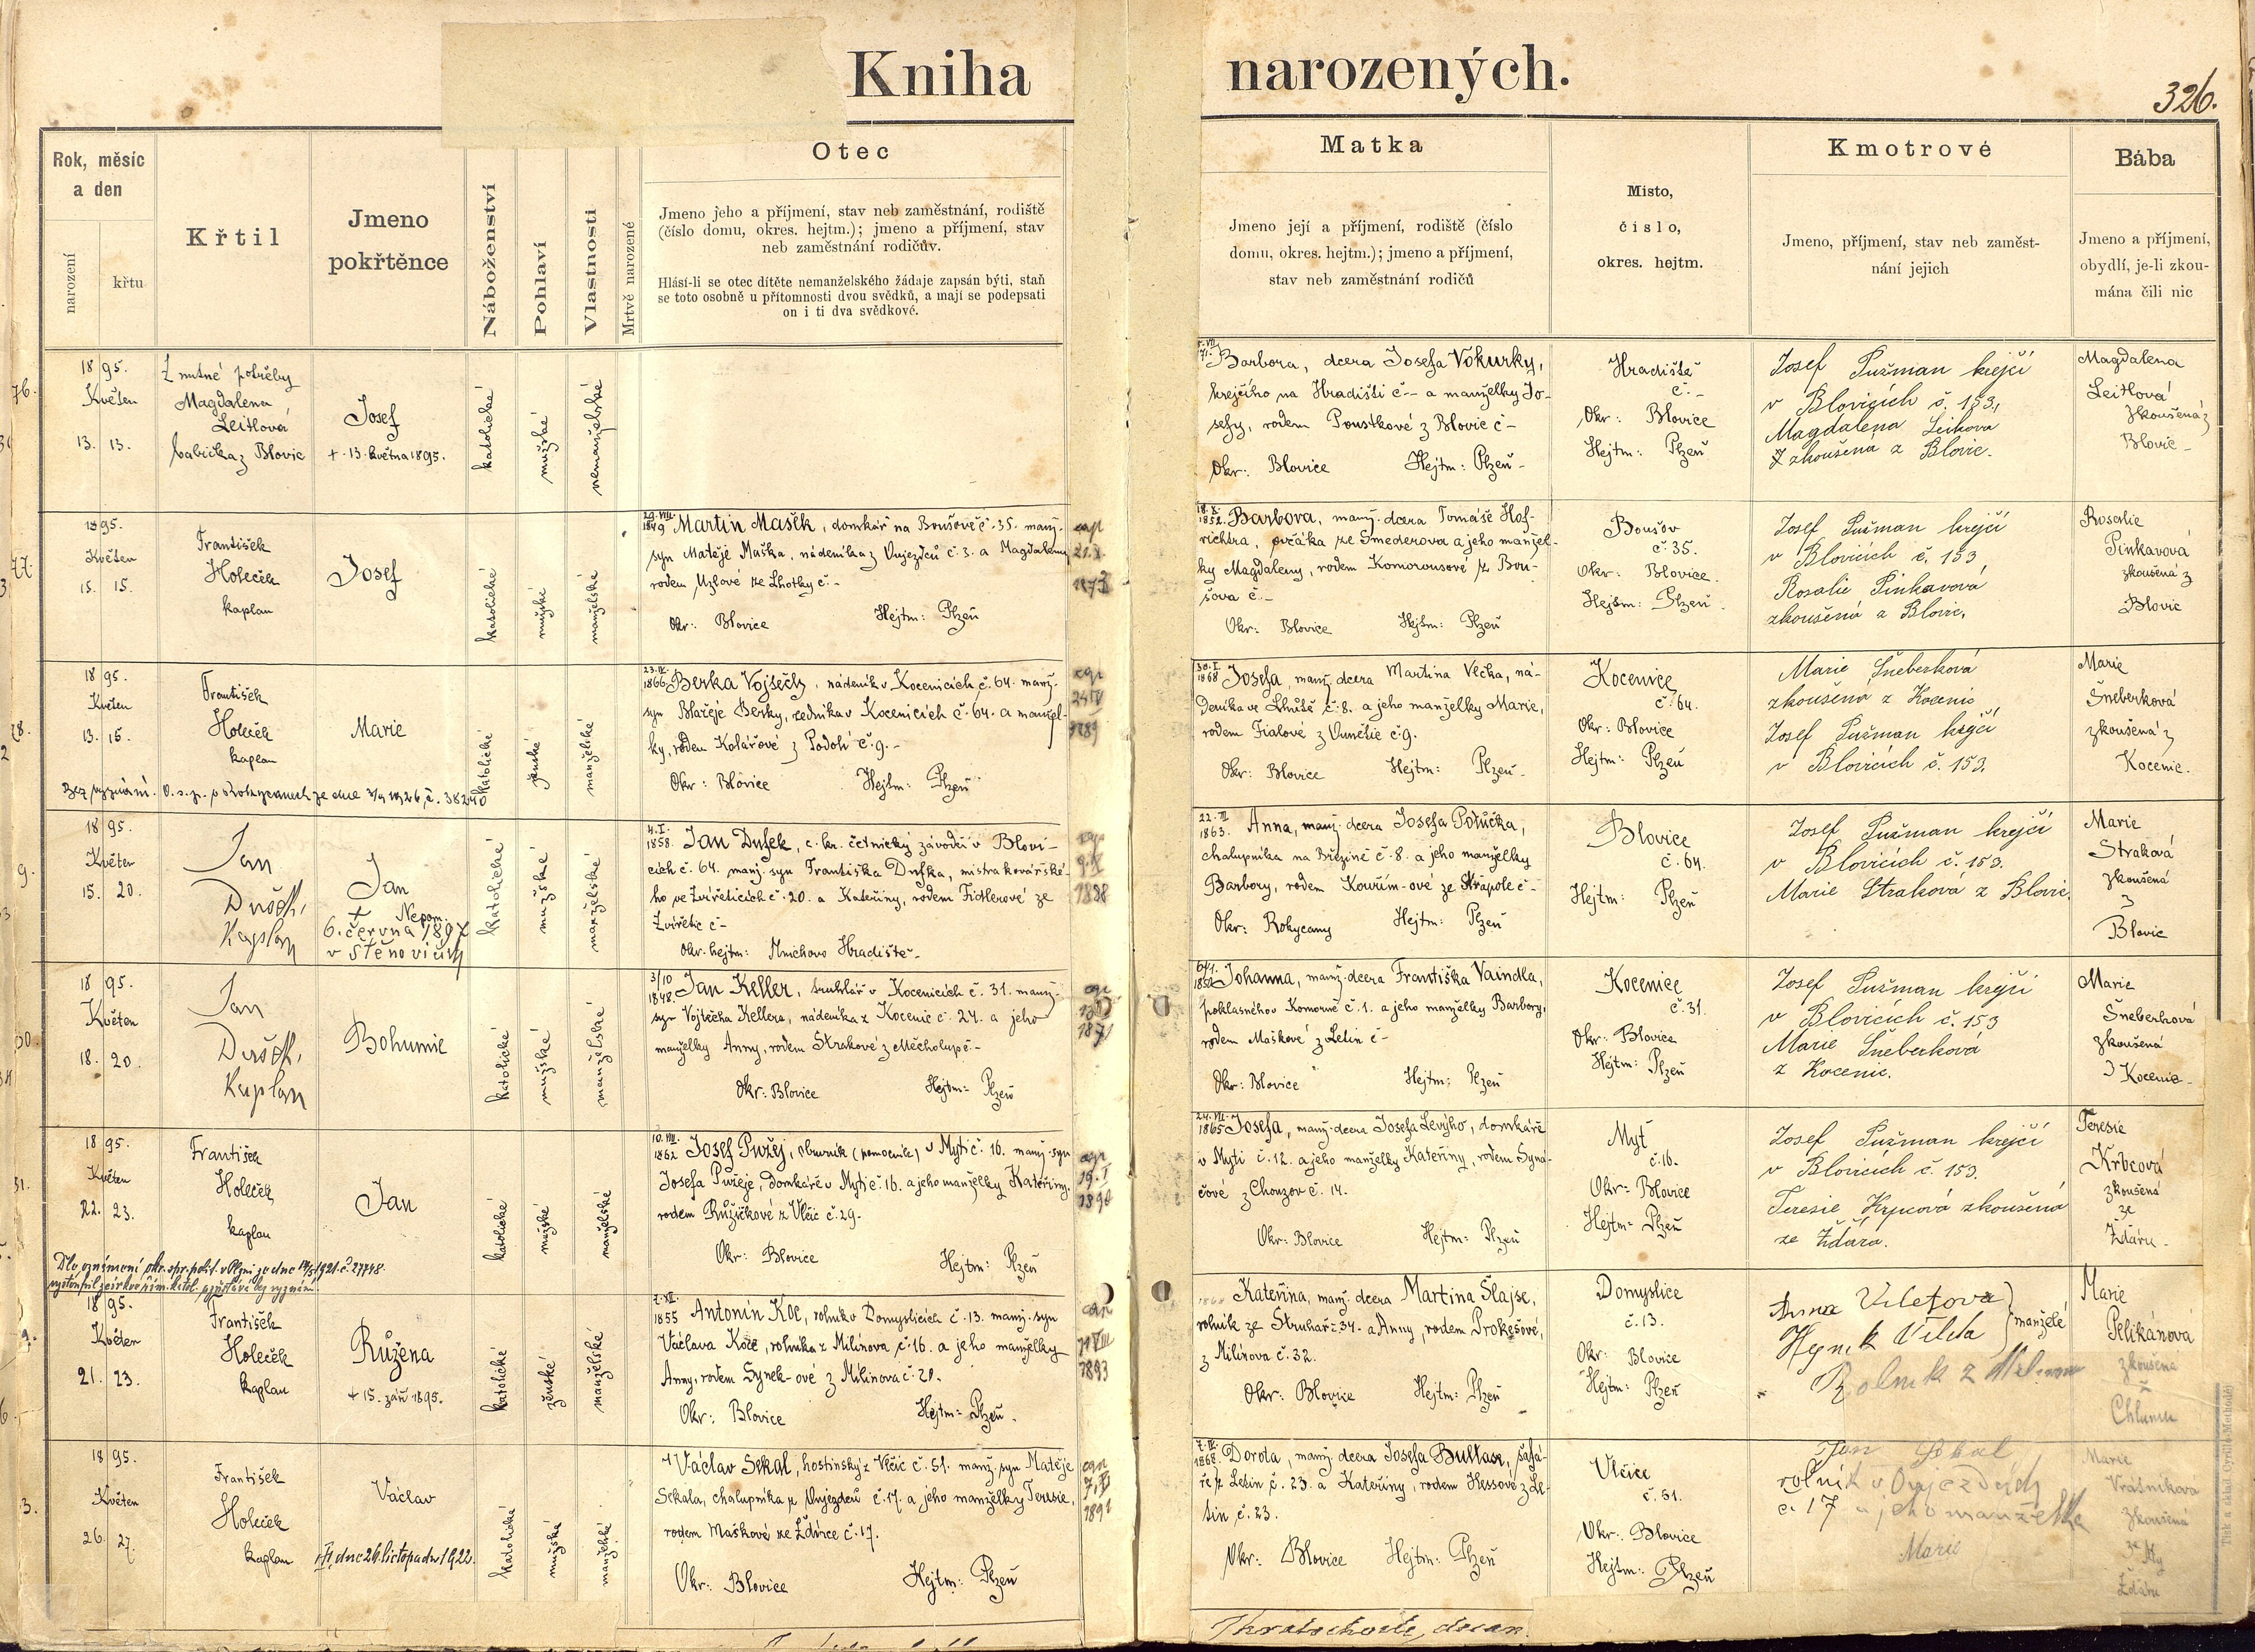 Kniha narozených.
326.
Rok, měsíc
a den
narození
křtu
Křtil
Jmeno
pokřtěnce
Náboženství
Pohlaví
Vlastnosti
Mrtvě narozené
Otec
Jmeno jeho a příjmení, stav neb zaměstnání, rodiště
(číslo domu, okres. hejtm.); jmeno a příjmení, stav
neb zaměstnání rodičův.
Hlásí-li se otec dítěte nemanželského žádaje zapsán býti, staň
se toto osobně u přítomnosti dvou svědků, a mají se podepsati
on i ti dva svědkové.
Matka
Jmeno její a příjmení, rodiště (číslo
domu, okres. hejtm.); jmeno a příjmení,
stav neb zaměstnání rodičů
Místo,
číslo,
okres. hejtm.
Kmotrové
Jmeno, příjmení, stav neb zaměst-
nání jejich
Bába
Jmeno a příjmení,
obydlí, je-li zkou-
mána čili nic
76.
1895.
Květen
13. 13.
Z nutné potřeby
Magdalena
Leitlová
babička z Blovic
Josef
+ 13. května 1895.
katolické
mužské
nemanželské
Barbora, dcera Josefa Vokurky,
krejčího na Hradišti č - a manželky Jo-
sefy, rodem Poustkové z Blovic č -
Okr: Blovice Hejtm: Plzeň -
Hradiště
č. -
Okr: Blovice
Hejtm: Plzeň
Josef Pužman krejčí
v Blovicích č. 153,
Magdalena
zkoušená z Blovic.
Magdalena
Leitlová
zkoušená z
Blovic -
77.
1895.
Květen
15. 15.
František
Holeček
kaplan
Josef
katolické
mužské
manželské
29. VIII.
1849 Martin Mašek, domkář na Boušově č. 35. manž.
syn Matěje Maška, nádeníka z Vnjezdců č. 3. a Magdaleny
rodem Uzlové ze Lhotky č -
Okr: Blovice Hejtm: Plzeň
18. X.
1852. Barbora, manž. dcera Tomáše Hof-
richtra, ovčáka ze Smederova a jeho manžel-
ky Magdaleny, rodem Komorousové z Bou-
šova č. -
Okr: Blovice Hejtm: Plzeň
Boušov
č. 35.
Okr: Blovice.
Hejtm: Plzeň.
Josef Pužman krejčí
v Blovicích č. 153
Rosalie Pinkavová
zkoušená z Blovic.
Rosalie
Pinkavová
zkoušená z
Blovic
78.
1895.
Květen
13. 15.
František
Holeček
kaplan
Marie
katolické
ženské
manželské
23. IV.
1866 Berka Vojtěch, nádeník v Kocenicích č. 64. manž.
syn Blažeje Berky, zedníka v Kocenicích č. 64. a manžel-
ky, rodem Kolářové z Podolí č. 9. -
Okr: Blovice Hejtm: Plzeň
30. I.
1868 Josefa, manž. dcera Martina Vlčka, ná-
deníka ve Lhůtě č. 8. a jeho manželky Marie,
rodem Fialové z Vunětic č. 9.
Okr: Blovice Hejtm: Plzeň -
Kocenice
č. 64.
Okr: Blovice
Hejtm: Plzeň
Marie Šneberková
zkoušená z Kocenic
Josef Pužman krejčí
v Blovicích č. 153.
Marie
Šneberková
zkoušená z
Kocenic.
1895.
Květen
15. 20.
Jan
Kaplan
Jan
Nepom.
+
6. června 1897
v Štěnovicích
katolické
mužské
manželské
4. I.
1858. Jan Dufek, c. kr. četnický závodčí v Blovi-
cích č. 64. manž. syn Františka Dufka, mistra kovářské-
ho ve Zvířeticích č. 20. a Kateřiny, rodem Fidlerové ze
Zvířetic č -
Okr. hejtm: Mnichovo Hradiště -
1888
1863. Anna, manž. dcera Josefa Potůčka,
chalupníka na Březině č. 8. a jeho manželky
Barbory, rodem Kouřím-ové ze Skapole č -
Okr: Rokycany Hejtm: Plzeň
Blovice
č. 64.
Hejtm: Plzeň
Josef Pužman krejčí
v Blovicích č. 153.
Marie Straková z Blovic.
Marie
Straková
zkoušená
z
Blovic
1895.
Květen
18. 20.
Jan
Kaplan
Bohumil
katolické
mužské
manželské
3/10
1848. Jan Keller, truhlář v Kocenicích č. 31. manž.
syn Vojtěcha Kellera, nádeníka z Kocenic č. 24. a jeho
manželky Anny, rodem Strakové z Měcholup č. -
Okr: Blovice Hejtm: Plzeň
Johanna, manž. dcera Františka Vaindla,
poklasného v Komorně č. 1. a jeho manželky Barbory,
rodem Maškové z Letin č -
Okr: Blovice Hejtm: Plzeň
Kocenice
č. 31.
Okr: Blovice
Hejtm: Plzeň
Josef Pužman krejčí
v Blovicích č. 153
Marie Šneberková
z Kocenic.
Marie
Šneberková
zkoušená
z Kocenic -
1895.
Květen
22. 23.
František
Holeček
kaplan
Jan
katolické
mužské
manželské
10. VIII.
1862 Josef Pužej, obuvník (pomocník) v Mýti č. 16. manž. syn
Josefa Pužeje, domkáře v Mýti č. 16. a jeho manželky Kateřiny,
rodem Růžičkové z Vlčic č. 29.
Okr: Blovice Hejtm: Plzeň
19. I
1890
24. VII.
1865 Josefa, manž. dcera Josefa Levýho, domkáře
v Mýti č. 12. a jeho manželky Kateřiny, rodem Syna-
čové z Chouzov č. 14.
Okr: Blovice Hejtm: Plzeň
Mýť
č. 16.
Okr: Blovice
Hejtm: Plzeň
Josef Pužman krejčí
v Blovicích č. 153.
Teresie Krpcová zkoušená
ze Ždára.
Teresie
Krbcová
zkoušená
ze
Ždáru.
1895.
Květen
21. 23.
František
Holeček
kaplan
Růžena
+ 15. září 1895.
katolické
ženské
manželské
7. XI.
1855 Antonín Koc, rolník v Domyslicích č. 13. manž. syn
Václava Koce, rolníka z Milínova č. 16. a jeho manželky
Anny, rodem Synek-ové z Milínova č. 20.
Okr: Blovice Hejtm: Plzeň.
1893
Kateřina, manž. dcera Martina Šlajse,
rolník ze Struhař č. 34. a Anny, rodem Prokešové,
z Milínova č. 32.
Okr: Blovice Hejtm: Plzeň
Domyslice
č. 13.
Okr: Blovice
Hejtm: Plzeň
Anna Viletova
Hynek Vileta
manželé
Rolník z Milínova
Marie
Pelikánová
zkoušená
z
Chlumu
1895.
Květen
26. 27.
František
Holeček
kaplan
Václav
dne 26. listopadu 1922.
katolické
mužské
manželské
Václav Sekal, hostinský z Vlčic č. 51. manž. syn Matěje
Sekala, chalupníka z Vnjezdců č. 17. a jeho manželky Teresie,
rodem Maškové ze Ždírce č. 17.
Okr: Blovice Hejtm: Plzeň
7. IV.
1868. Dorota, manž. dcera Josefa Bultase, šafá-
ře z Letin č. 23. a Kateřiny, rodem Hessové z Le-
tin č. 23.
Okr: Blovice Hejtm: Plzeň
Vlčice
č. 51.
Okr: Blovice
Hejtm: Plzeň
Jan Sekal
rolník v
č. 17 a jeho manželka
Marie
Marie
zkoušená
Ždáru
Tisk a sklad Cyrillo-Method.